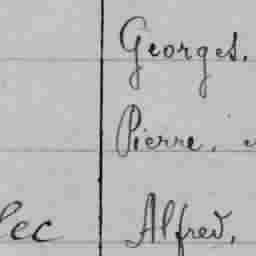 Georges.
Pierre.
Alfred.